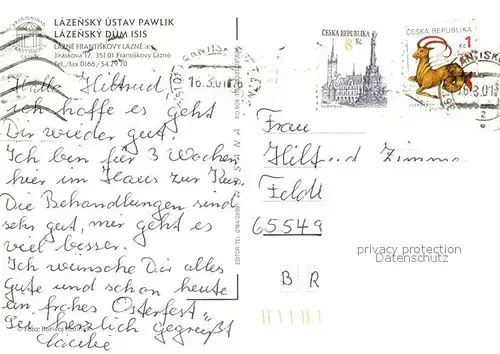 LÁZEŇSKÝ ÚSTAV PAWLIK
LÁZEŇSKÝ DŮM ISIS
LÁZNĚ FRANTIŠKOVY LÁZNĚ a.s.
Jiráskova 17, 351 01 Františkovy Lázně
Tel./fax 0166/54 29 70
Hallo Hiltrud
ich hoffe es geht
Dir wieder gut.
Ich bin für 3 Wochen
hier im Haus zur Kur.
Die Behandlungen sind
sehr gut, mir geht es
viel besser.
Ich wünsche Dir alles
Gute und schon heute
ein "frohes Osterfest"
Sei herzlich gegrüßt
© Foto:
EDITOR: TEL.
ČESKÁ REPUBLIKA
8
Kč
ČESKÁ REPUBLIKA
1
Kč
16.3.01
16.3.01
2
Frau
Hiltrud Zimmer
65549
B R
privacy protection
Datenschutz